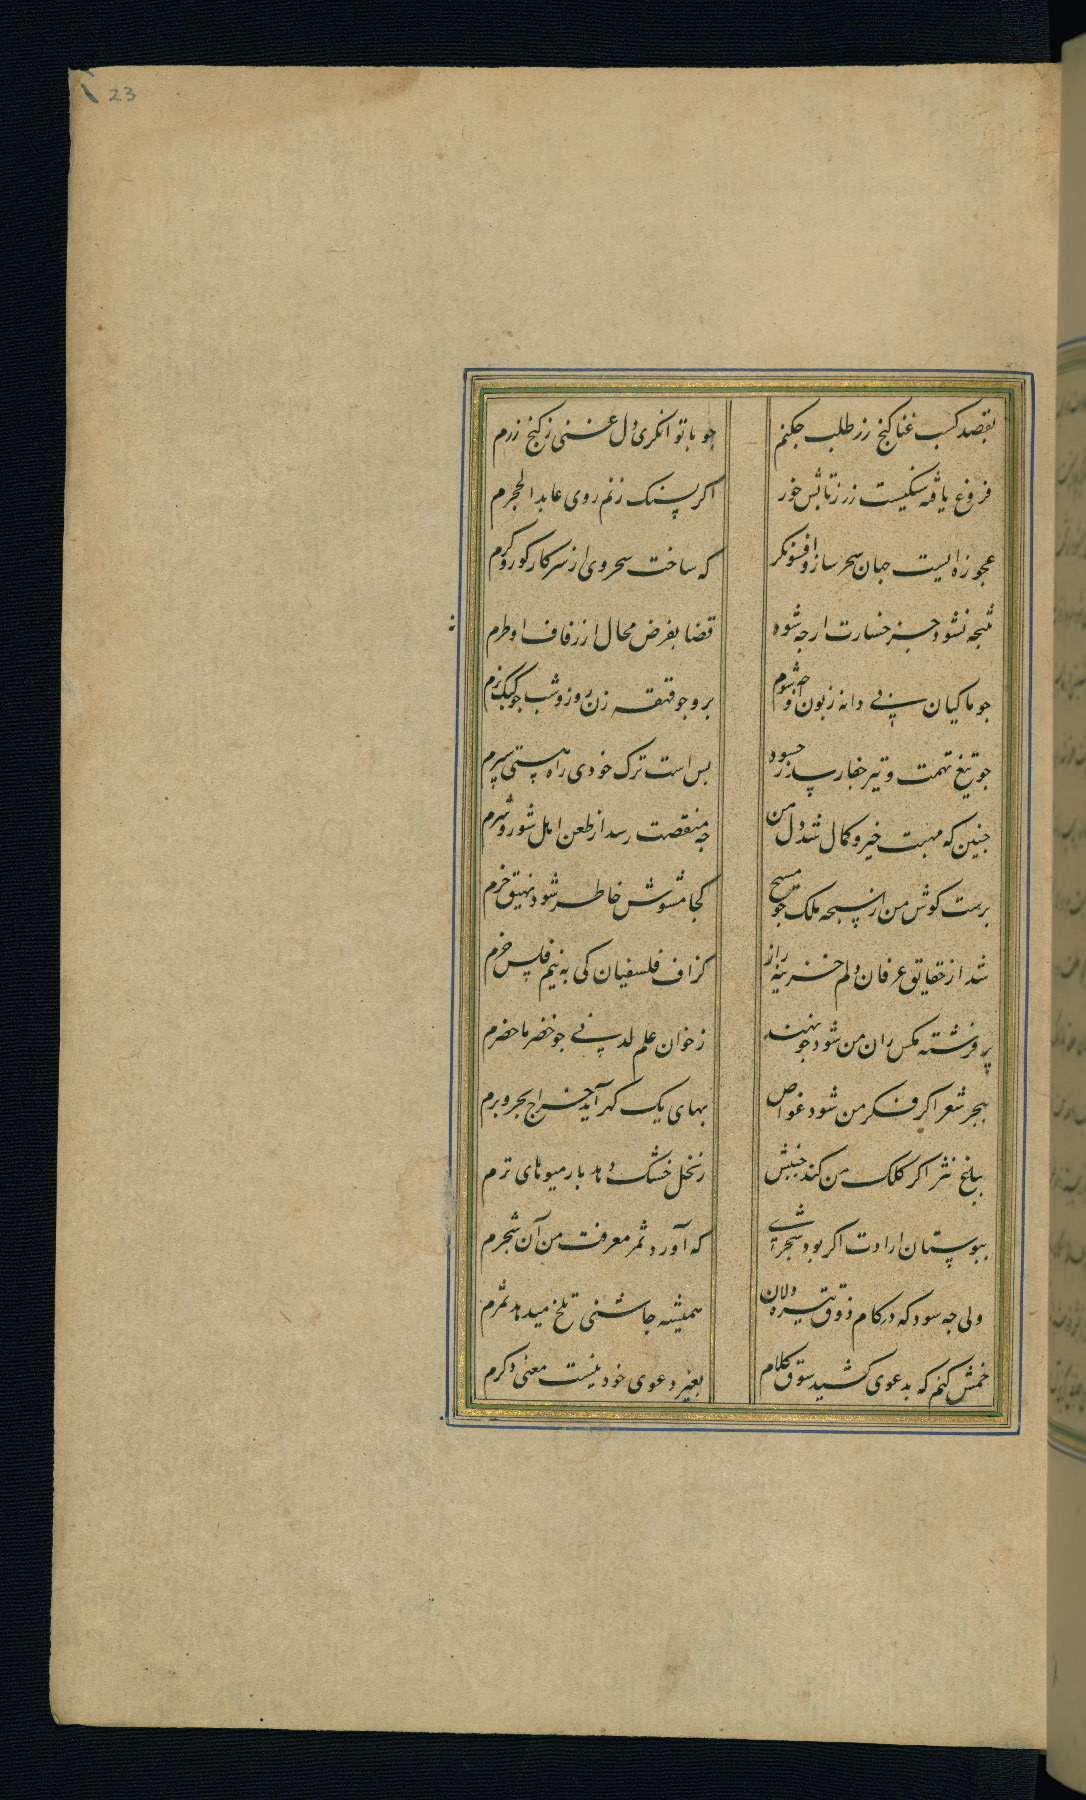 23
بقصد کسب غنا کنج زر طلب چکنم
چو با توانکری دل غنی ز کنج زرم
فروغ یافته سنکیست زر ز تابش خور
اکر بسنک زنم روی عابد الحجرم
عجوزه ایست جهان سحر ساز و افسونکر
که ساخت سحر وی از سر کار کور و کرم
نتیجه نشود جز خسارت ار چه شود
قضا بفرض محال از زفاف او طرم
چو ماکیان پی دانه زبون چه شوم
برو چو قهقهه زن روز و شب چو کبک نرم
چو تیغ تهمت و تیر جفا رسد ز حسود
بس است ترک خودی راه هستی سپرم
چنین که مهبت خیر و کمال شد دل من
چه منقصت رسد از طعن اهل شور و شرم
پرست کوش من از سبحه ملک چو مسیح
کجا مشوش خاطر شود نهیق خرم
شد از حقایق عرفان دلم خزینه راز
کزاف فلسفیان کی به نیم فلس خرم
پر فرشته مکس ران من شود چو نهند
ز خوان علم لدنی چو خضر ماحضرم
ببحر شعر اکر فکر من شود غواص
بهای یک کهر آید خراج بحر و برم
بباغ نثر اکر کلک من کند جنبش
ز نخل خشک دهد بار میوهای ترم
ببوستان ارادت اکر بود شجر
که آورد ثمر معرفت من آن شجرم
ولی چه سود که در کام ذوق تیره دلان
همیشه چاشنی تلخ میدهد ثمرم
خمش کنم که بدعوی کشید سوق کلام
بغیر دعوی خود نیست معنی دکرم